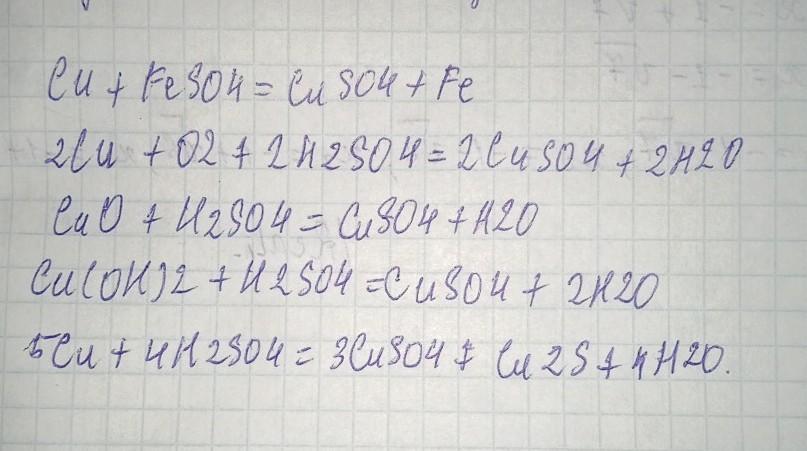 Cu + FeSO4 = CuSO4 + Fe
2Cu + O2 + 2H2SO4 = 2CuSO4 + 2H2O
CuO + H2SO4 = CuSO4 + H2O
Cu(OH)2 + H2SO4 = CuSO4 + 2H2O
5Cu + 4H2SO4 = 3CuSO4 + Cu2S + 4H2O.